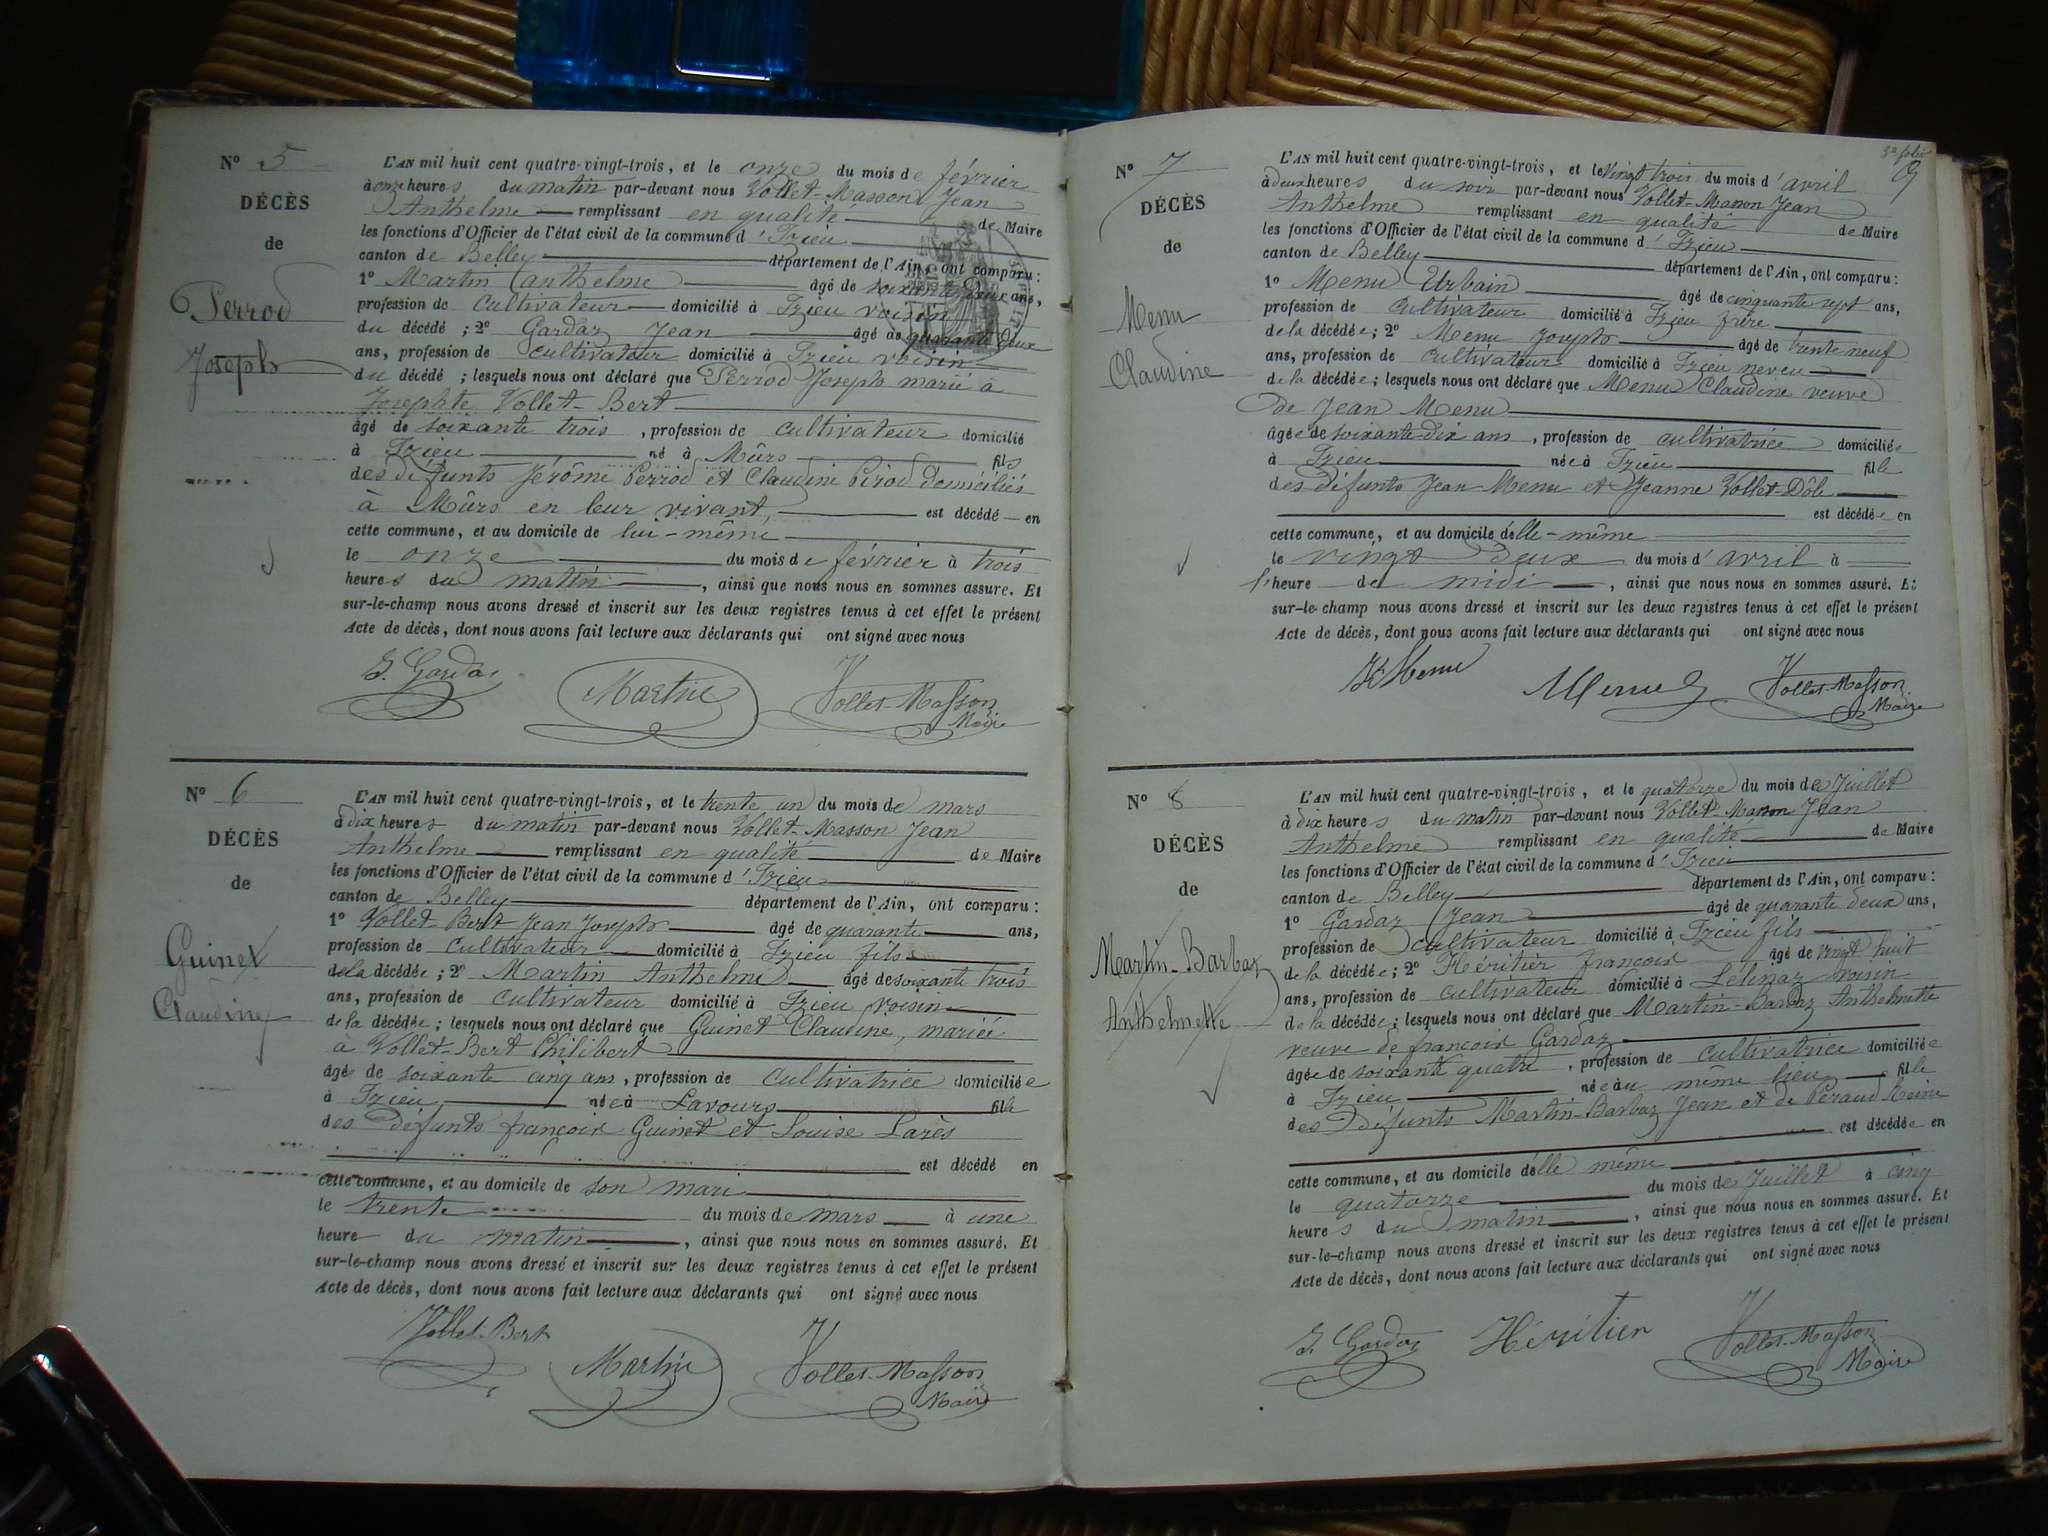 N° 5
DÉCÈS
de
Perrod
Joseph
L'AN mil huit cent quatre-vingt-trois, et le onze du mois de février
à onze heures du matin par-devant nous Vollet-Masson Jean
Anthelme remplissant en qualité de Maire
les fonctions d'Officier de l'état civil de la commune d'Izieu
canton de Belley département de l'Ain, ont comparu :
1° Martin Anthelme âgé de soixante deux ans,
profession de cultivateur domicilié à Izieu voisin
du décédé ; 2° Gardaz Jean âgé de quarante deux
ans, profession de cultivateur domicilié à Izieu voisin
du décédé ; lesquels nous ont déclaré que Perrod Joseph marié à
Josephte Vollet-Bert
âgé de soixante trois , profession de cultivateur domicilié
à Izieu né à Mûrs fils
des défunts Jérôme Perrod et Claudine Pirod domiciliés
à Mûrs en leur vivant, est décédé en
cette commune, et au domicile de lui-même
le onze du mois de février à trois
heures du matin , ainsi que nous nous en sommes assuré. Et
sur-le-champ nous avons dressé et inscrit sur les deux registres tenus à cet effet le présent
Acte de décès, dont nous avons fait lecture aux déclarants qui ont signé avec nous
J. Gardaz Martin Vollet-Masson
Maire
N° 6
DÉCÈS
de
Guinet
Claudine
L'AN mil huit cent quatre-vingt-trois, et le trente un du mois de mars
à dix heures du matin par-devant nous Vollet-Masson Jean
Anthelme remplissant en qualité de Maire
les fonctions d'Officier de l'état civil de la commune d'Izieu
canton de Belley département de l'Ain, ont comparu :
1° Vollet-Bert Jean Joseph âgé de quarante ans,
profession de cultivateur domicilié à Izieu fils
de la décédée ; 2° Martin Anthelme âgé de soixante trois
ans, profession de cultivateur domicilié à Izieu voisin
de la décédée ; lesquels nous ont déclaré que Guinet Claudine, mariée
à Vollet-Bert Philibert
âgée de soixante cinq ans, profession de cultivatrice domiciliée
à Izieu née à Lavours fille
des défunts françois Guinet et Louise Larès
est décédé en
cette commune, et au domicile de son mari
le trente du mois de mars à une
heure du matin , ainsi que nous nous en sommes assuré. Et
sur-le-champ nous avons dressé et inscrit sur les deux registres tenus à cet effet le présent
Acte de décès, dont nous avons fait lecture aux déclarants qui ont signé avec nous
Vollet-Bert Martin Vollet-Masson
Maire
3e folio
N° 7
DÉCÈS
de
Menu
Claudine
L'AN mil huit cent quatre-vingt-trois, et le vingt trois du mois d'avril
à deux heures du soir par-devant nous Vollet-Masson Jean
Anthelme remplissant en qualité de Maire
les fonctions d'Officier de l'état civil de la commune d'Izieu
canton de Belley département de l'Ain, ont comparu :
1° Menu Urbain âgé de cinquante sept ans,
profession de cultivateur domicilié à Izieu frère
de la décédée ; 2° Menu Joseph âgé de trente neuf
ans, profession de cultivateur domicilié à Izieu neveu
de la décédée ; lesquels nous ont déclaré que Menu Claudine veuve
de Jean Menu
âgée de soixante-dix ans , profession de cultivatrice domiciliée
à Izieu née à Izieu fille
des défunts Jean Menu et Jeanne Vollet-Dôle
est décédée en
cette commune, et au domicile d'elle-même
le vingt deux du mois d'avril à
l'heure de midi , ainsi que nous nous en sommes assuré. Et
sur-le-champ nous avons dressé et inscrit sur les deux registres tenus à cet effet le présent
Acte de décès, dont nous avons fait lecture aux déclarants qui ont signé avec nous
Menu Menu Vollet-Masson
Maire
N° 8
DÉCÈS
de
Martin-Barbaz
Anthelmette
L'AN mil huit cent quatre-vingt-trois, et le quatorze du mois de Juillet
à dix heures du matin par-devant nous Vollet-Masson Jean
Anthelme remplissant en qualité de Maire
les fonctions d'Officier de l'état civil de la commune d'Izieu
canton de Belley département de l'Ain, ont comparu :
1° Gardaz Jean âgé de quarante deux ans,
profession de cultivateur domicilié à Izieu fils
de la décédée ; 2° Héritier françois âgé de vingt huit
ans, profession de cultivateur domicilié à Lélinaz voisin
de la décédée ; lesquels nous ont déclaré que Martin-Barbaz Anthelmette
veuve de françois Gardaz
âgée de soixante quatre , profession de cultivatrice domiciliée
à Izieu née au même lieu fille
des défunts Martin-Barbaz Jean et de Péraud Reine
est décédée en
cette commune, et au domicile d'elle même
le quatorze du mois de Juillet à cinq
heures du matin , ainsi que nous nous en sommes assuré. Et
sur-le-champ nous avons dressé et inscrit sur les deux registres tenus à cet effet le présent
Acte de décès, dont nous avons fait lecture aux déclarants qui ont signé avec nous
J. Gardaz Héritier Vollet-Masson
Maire